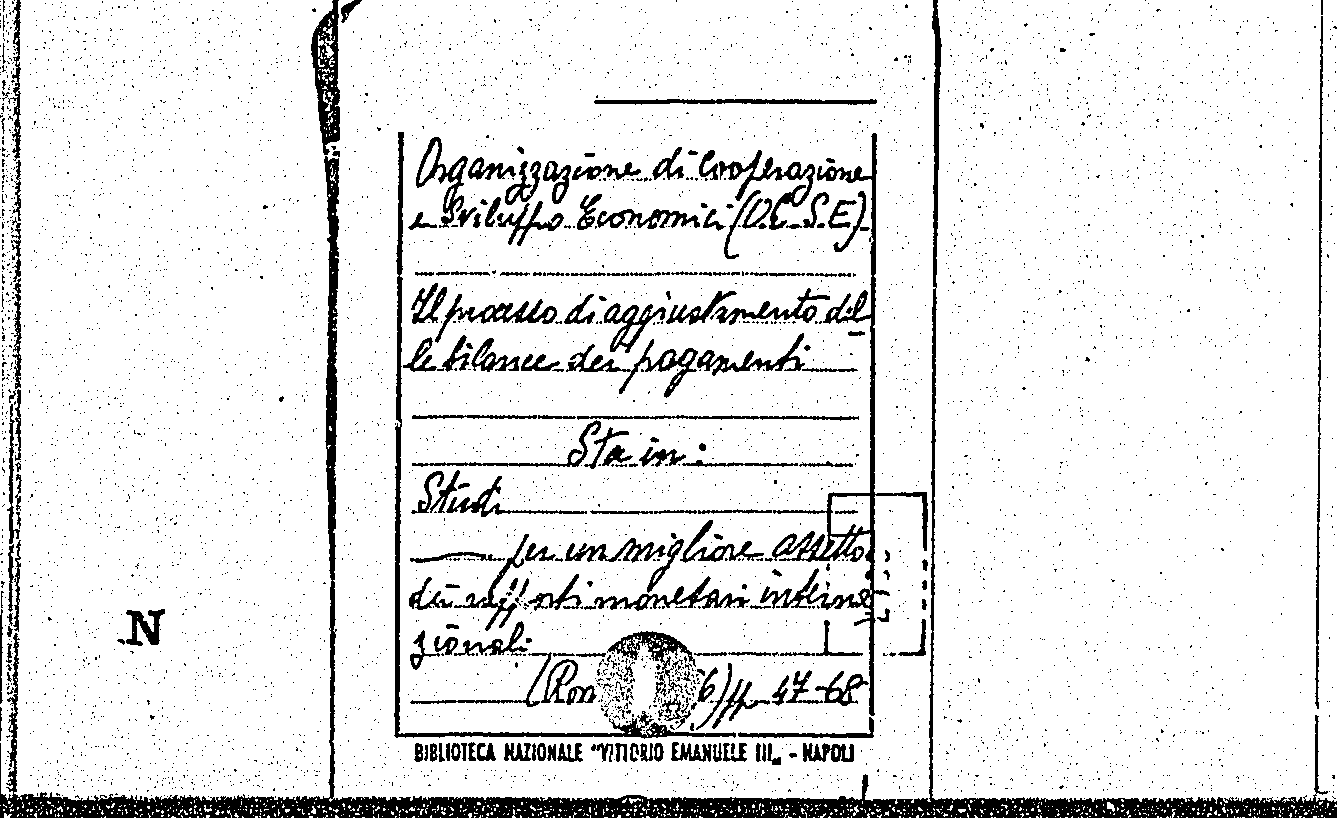 Organizzazione di Cooperazione
e Sviluppo Economici (O.C.S.E).
Il processo di aggiustamento del
le bilance dei pagamenti
Sta in:
Studi
per un migliore assetto
dei rapporti monetari interna
zionali
6) pp. 47-68
N
BIBLIOTECA NAZIONALE "VITTORIO EMANUELE III„ - NAPOLI